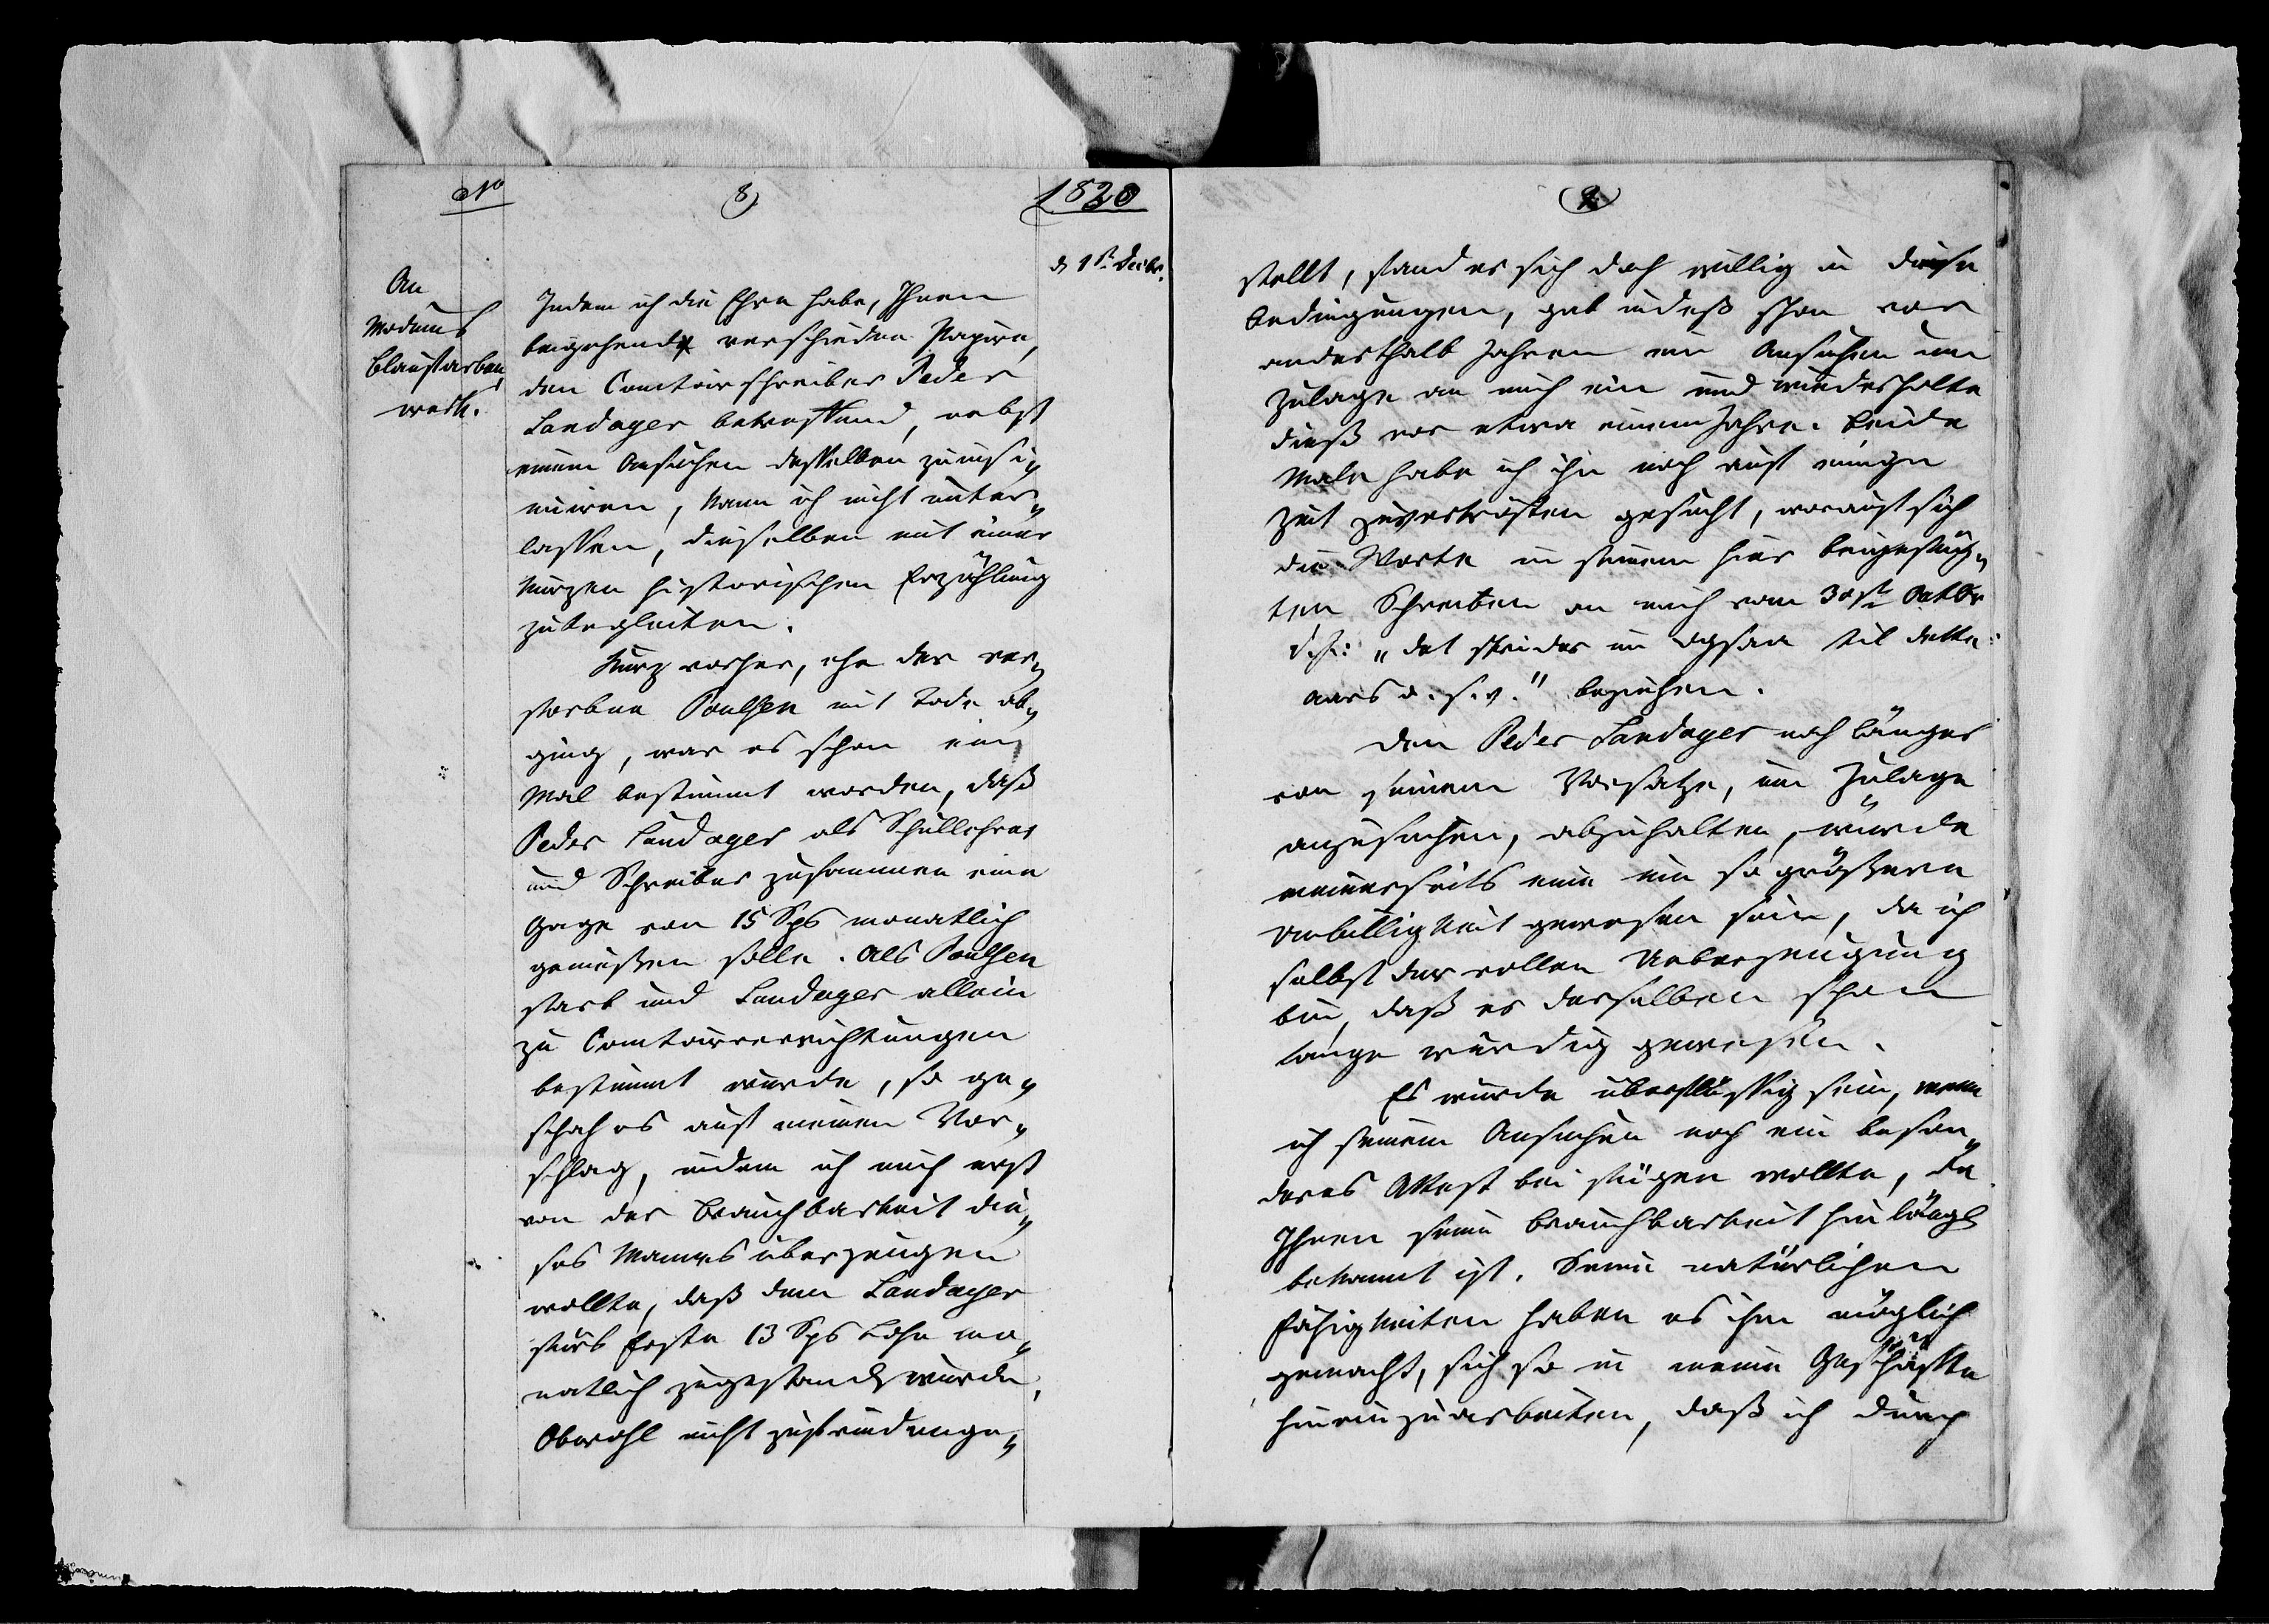 No
8
1820
d 1st Decbr.
An
Modums
Blaufarben
werk.
Indem ich die Ehre habe, Ihnen
beigehend verschiedene Papiere,
den Comtoirschreiber Peder
Landager betreffend, nebst
einem Ansuchen desselben zu insi„
nuiren, kann ich nicht unter„
lassen, dieselben mit einer
kurzen historischen Erzählung
zu begleiten.
Kurz vorher, ehe der ver„
storbene Poulsen mit Tode ab„
ging, war es schon ein
Mal bestimmt worden, daß
Peder Landager als Schullehrer
und Schreiber zusammen eine
Gage von 15 Sps monatlich
genießen solle. Als Poulsen
starb und Landager allein
zu Comtoirverrichtungen
bestimmt wurde, so ge„
schah es auf meinen Vor„
schlag, indem ich mich erst
von der Brauchbarkeit die„
ses Mannes überzeugen
wollte, daß dem Landager
fürs Erste 13 Sps Lohn mo„
natlich zugestand. wurde.
Obwohl nicht zufriedenge„
9
stellt, fand er sich doch willig in diese
Bedingungen, gab indeß schon vor
anderthalb Jahren ein Ansuchen um
Zulage an mich ein und wiederholte
dieß vor etwa einem Jahre. Beide
Male habe ich ihn noch auf einige
Zeit zu vertrösten gesucht, worauf sich
die Worte in seinem hier beigefüg„
ten Schreiben an mich vom 30st Octbr
d. J: „det skeider nu ogsaa til dette
aars o. s. v." beziehen.
Den Peder Landager noch länger
von seinem Vorsatze, um Zulage
anzusuchen, abzuhalten, würde
meinerseits eine um so größere
Unbilligkeit gewesen sein, da ich
selbst der vollen Ueberzeugung
bin, daß er derselben schon
lange würdig gewesen.
Es würde überflüssig sein, wenn
ich seinem Ansuchen noch ein beson„
deres Attest bei fügen wollte, da
Ihnen seine Brauchbarkeit hinlängl
bekannt ist. Seine natürlichen
Fähigkeiten haben es ihm möglich
gemacht, sich so in meine Geschäfte
hineinzuarbeiten, daß ich durch